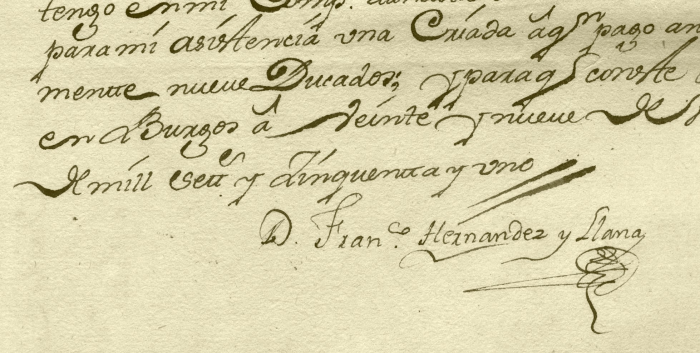 tengo en mi Comp.ª
para mi asistencia una Criada â qn pago an
mente nueve Ducados; y para q conste
en Burgos â veinte y nueve de
de mill Sett y Cinquenta y uno
D. Fran.co Hernandez y Llana